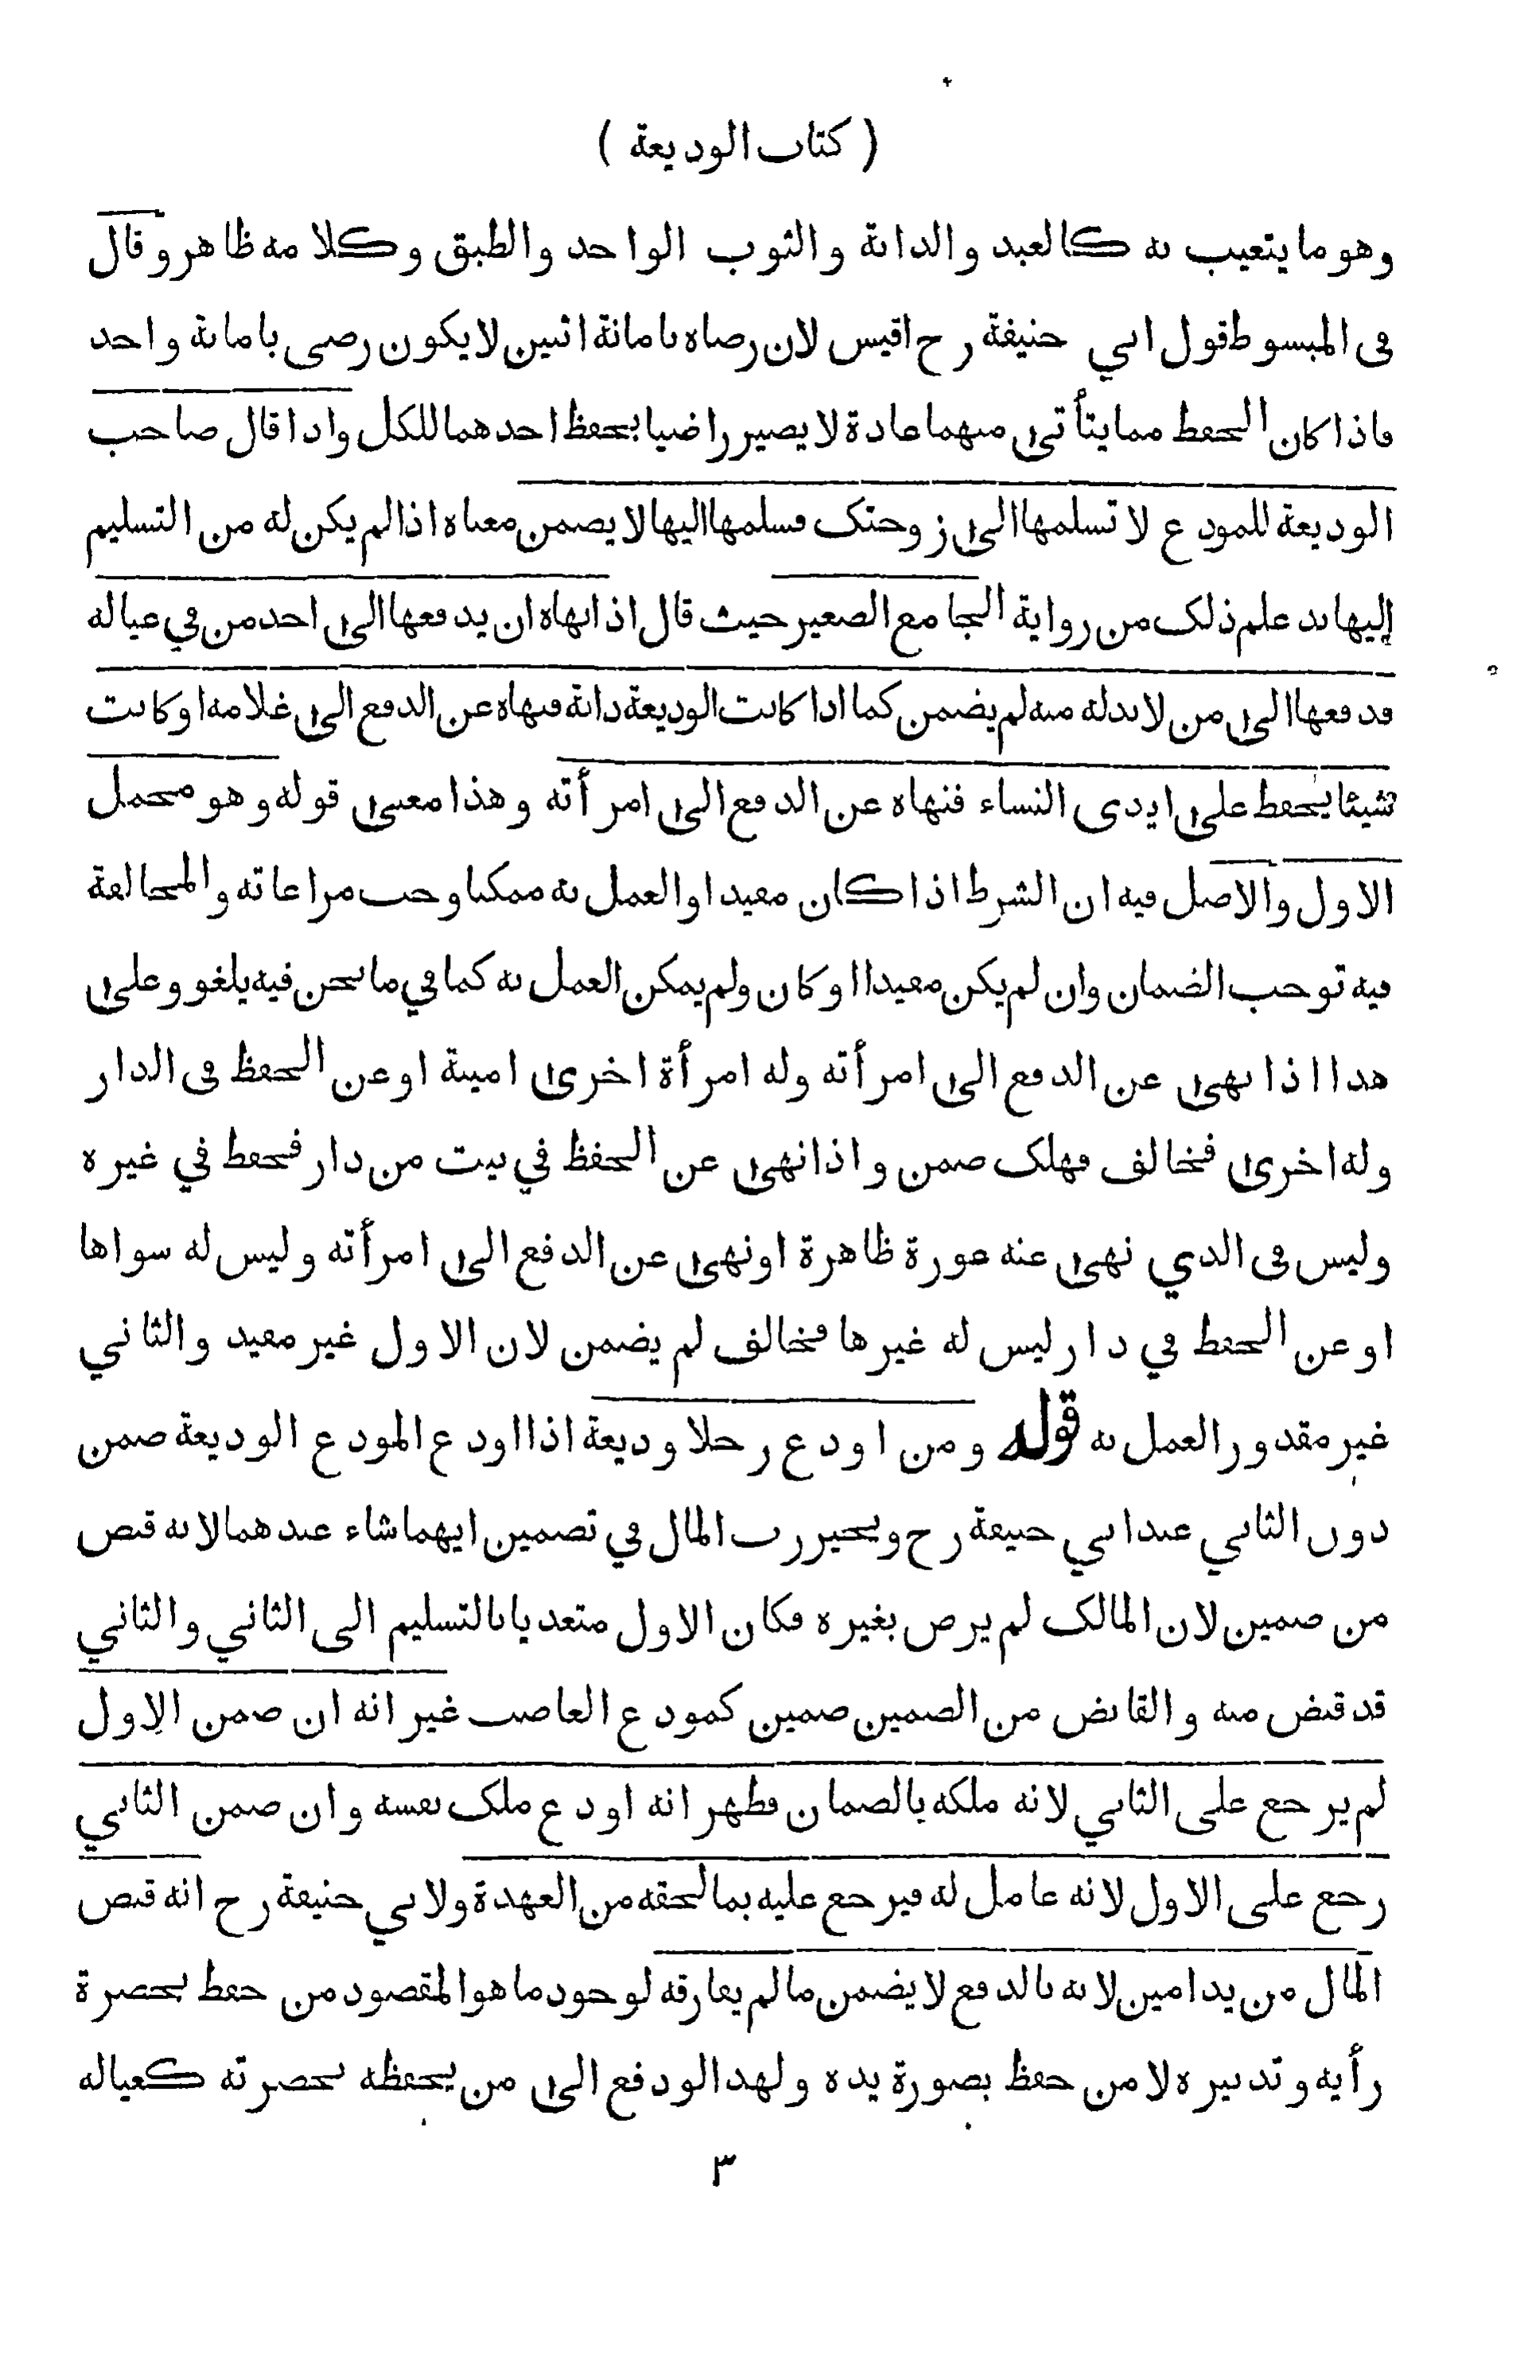 ( كتاب الوديعة )
وهو ما يتعيب به كالعبد والدابة والثوب الواحد والطبق وكلامه ظاهر وقال
في المبسوط قول ابي حنيفة رح اقيس لان رضاه بامانة اثنين لا يكون رضى بامانة واحد
فاذا كان الحفظ مما يتأتى منهما عادة لا يصير راضيا بحفظ احدهما للكل واذا قال صاحب
الوديعة للمودع لا تسلمها الى زوجتك فسلمها اليها لا يضمن معناه اذا لم يكن له من التسليم
إليها بد علم ذلك من رواية الجامع الصغير حيث قال اذا نهاه ان يدفعها الى احد من في عياله
فدفعها الى من لا بد له منه لم يضمن كما اذا كانت الوديعة دابة فنهاه عن الدفع الى غلامه او كانت
شيئا يحفظ على ايدى النساء فنهاه عن الدفع الى امرأته وهذا معنى قوله وهو محمل
الاول والاصل فيه ان الشرط اذا كان مفيدا والعمل به ممكنا وجب مراعاته والمخالفة
فيه توجب الضمان وان لم يكن مفيدا او كان ولم يمكن العمل به كما في ما نحن فيه يلغو وعلى
هذا اذا نهى عن الدفع الى امرأته وله امرأة اخرى امينة او عن الحفظ في الدار
وله اخرى فخالف فهلك ضمن واذا نهى عن الحفظ في بيت من دار فحفظ في غيره
وليس في الذي نهى عنه عورة ظاهرة او نهى عن الدفع الى امرأته وليس له سواها
او عن الحفظ في دار ليس له غيرها فخالف لم يضمن لان الاول غير مفيد والثاني
غير مقدور العمل به قوله ومن اودع رجلا وديعة اذا اودع المودع الوديعة ضمن
دون الثاني عند ابي حنيفة رح ويخير رب المال في تضمين ايهما شاء عندهما لانه قبض
من ضمين لان المالك لم يرض بغيره فكان الاول متعديا بالتسليم الى الثاني والثاني
قد قبض منه والقابض من الضمين ضمين كمودع الغاصب غير انه ان ضمن الاول
لم يرجع على الثاني لانه ملكه بالضمان فظهر انه اودع ملك نفسه وان ضمن الثاني
رجع على الاول لانه عامل له فيرجع عليه بما لحقه من العهدة ولابي حنيفة رح انه قبض
المال من يد امين لانه بالدفع لا يضمن ما لم يفارقه لوجود ما هو المقصود من حفظ بحضرة
رأيه وتدبيره لا من حفظ بصورة يده ولهذا لو دفع الى من يحفظه بحضرته كعياله
٣